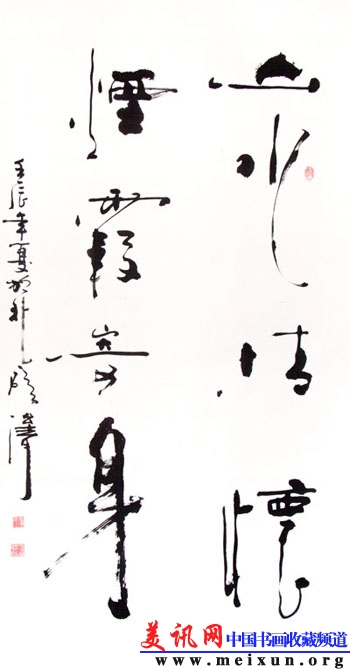 山水情懷
煙霞身
壬辰年夏
美讯网 中国书画收藏频道
www.meixun.org